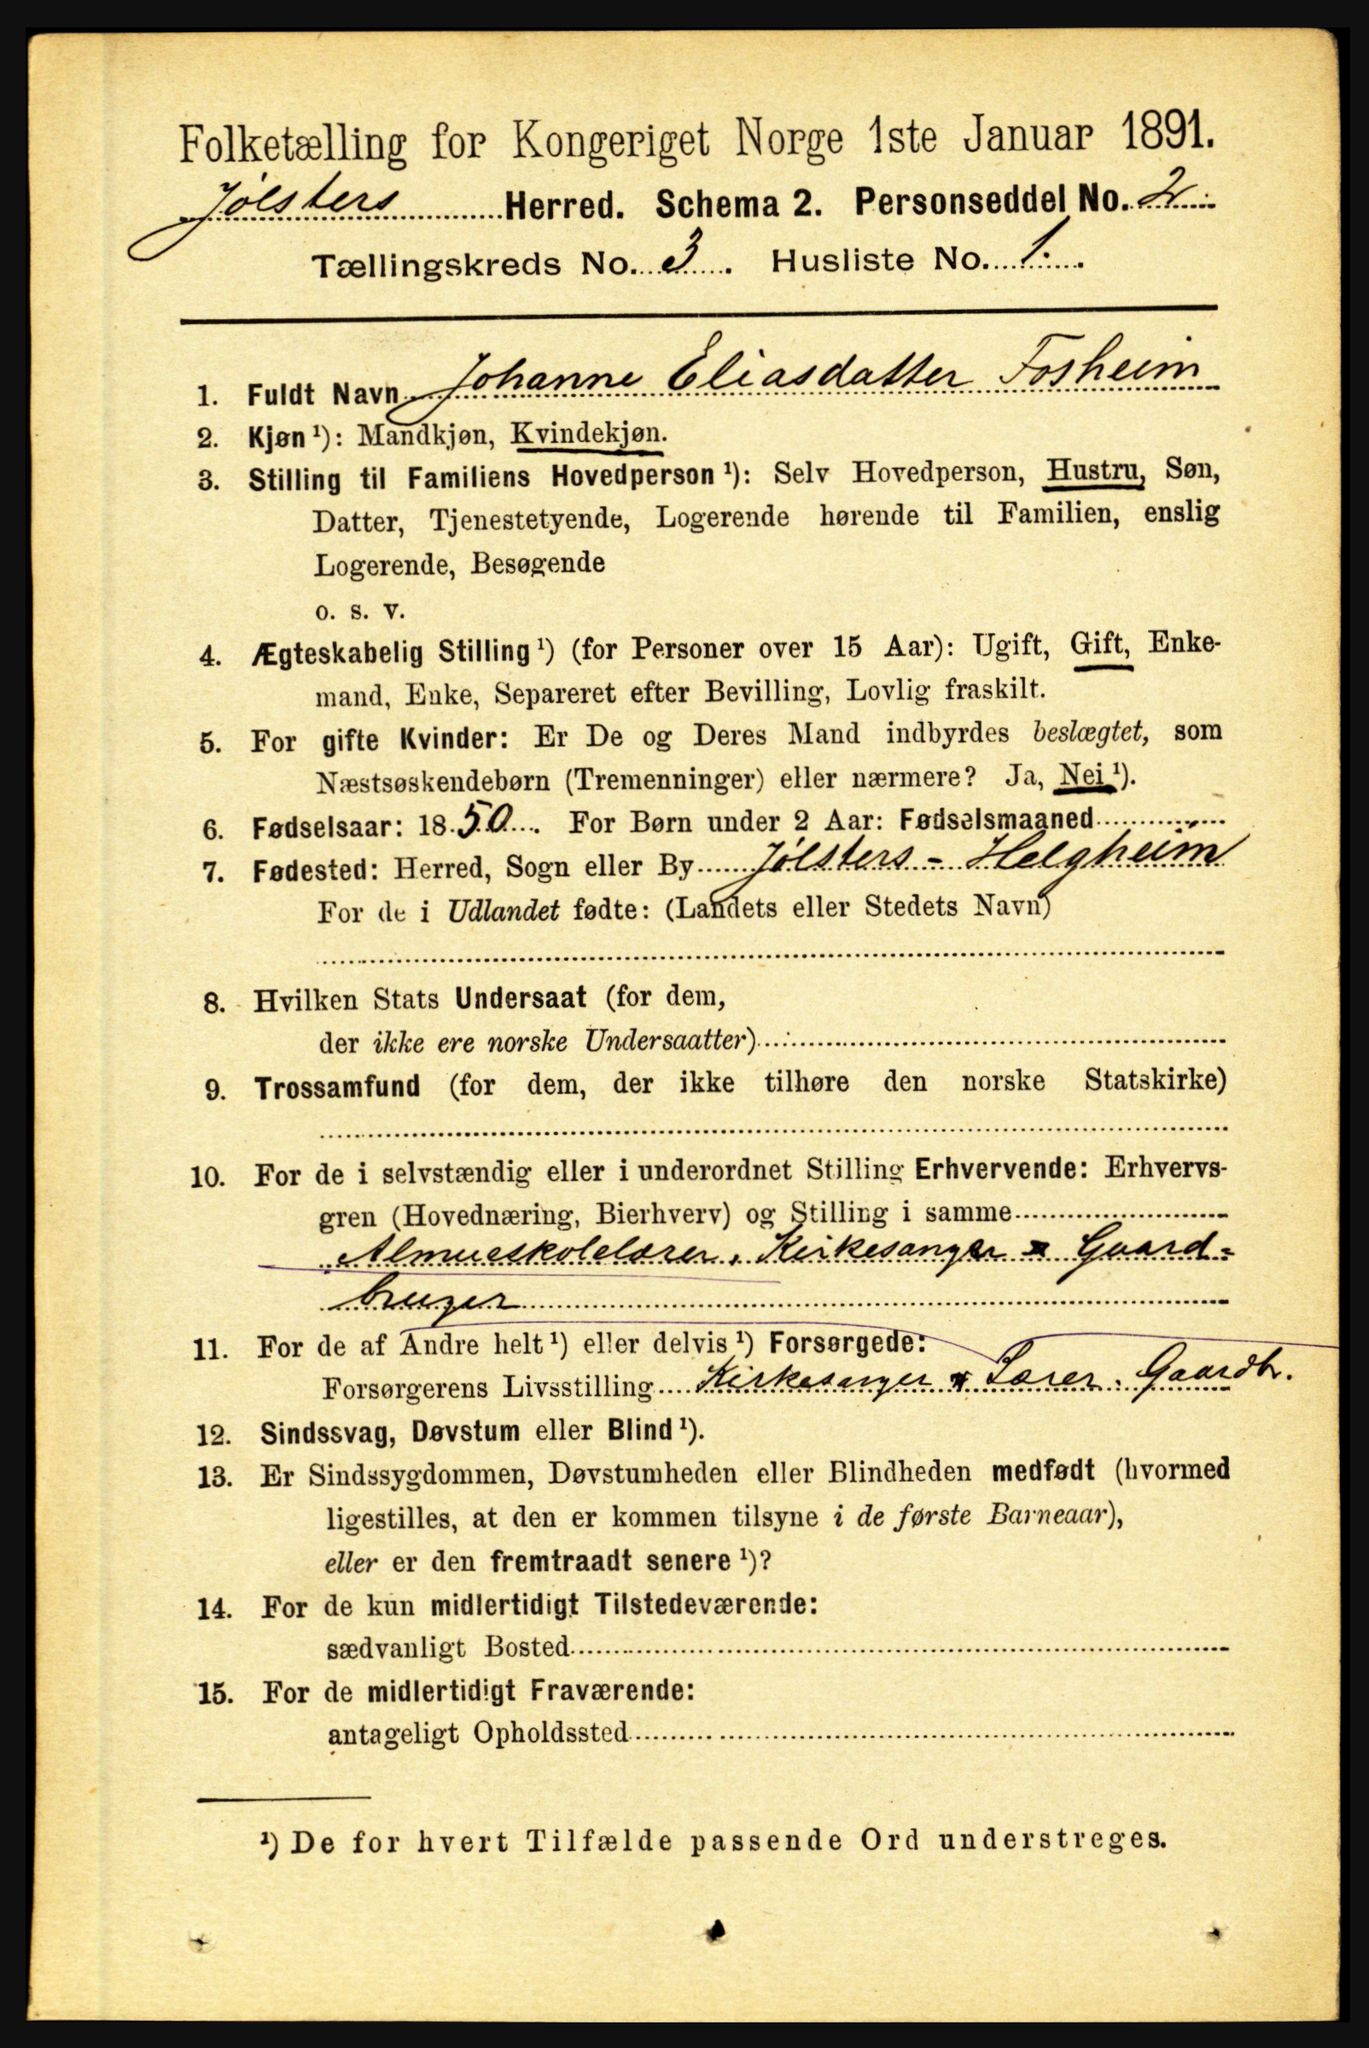 Folketælling for Kongeriget Norge 1ste Januar 1891.
Jølsters Herred. Schema 2. Personseddel No. 2
Tællingskreds No. 3. Husliste No. 1.
1. Fuldt Navn Johanne Eliasdatter Fosheim
2. Kjøn¹): Mandkjøn, Kvindekjøn.
3. Stilling til Familiens Hovedperson¹): Selv Hovedperson, Hustru, Søn,
Datter, Tjenestetyende, Logerende hørende til Familien, enslig
Logerende, Besøgende
o. s. v.
4. Ægteskabelig Stilling¹) (for Personer over 15 Aar): Ugift, Gift, Enke-
mand, Enke, Separeret efter Bevilling, Lovlig fraskilt.
5. For gifte Kvinder: Er De og Deres Mand indbyrdes beslægtet, som
Næstsøskendebørn (Tremenninger) eller nærmere? Ja, Nei¹).
6. Fødselsaar: 1850. For Børn under 2 Aar: Fødselsmaaned
7. Fødested: Herred, Sogn eller By Jølsters - Helgheim
For de i Udlandet fødte: (Landets eller Stedets Navn)
8. Hvilken Stats Undersaat (for dem,
der ikke ere norske Undersaatter)
9. Trossamfund (for dem, der ikke tilhøre den norske Statskirke)
10. For de i selvstændig eller i underordnet Stilling Erhvervende: Erhvervs-
gren (Hovednæring, Bierhverv) og Stilling i samme
Almueskolelærer, Kirkesanger & Gaard-
bruger
11. For de af Andre helt¹) eller delvis¹) Forsørgede:
Forsørgerens Livsstilling Kirkesanger & Lærer. Gaardbr.
12. Sindssvag, Døvstum eller Blind¹).
13. Er Sindssygdommen, Døvstumheden eller Blindheden medfødt (hvormed
ligestilles, at den er kommen tilsyne i de første Barneaar),
eller er den fremtraadt senere¹)?
14. For de kun midlertidigt Tilstedeværende:
sædvanligt Bosted
15. For de midlertidigt Fraværende:
antageligt Opholdssted
¹) De for hvert Tilfælde passende Ord understreges.